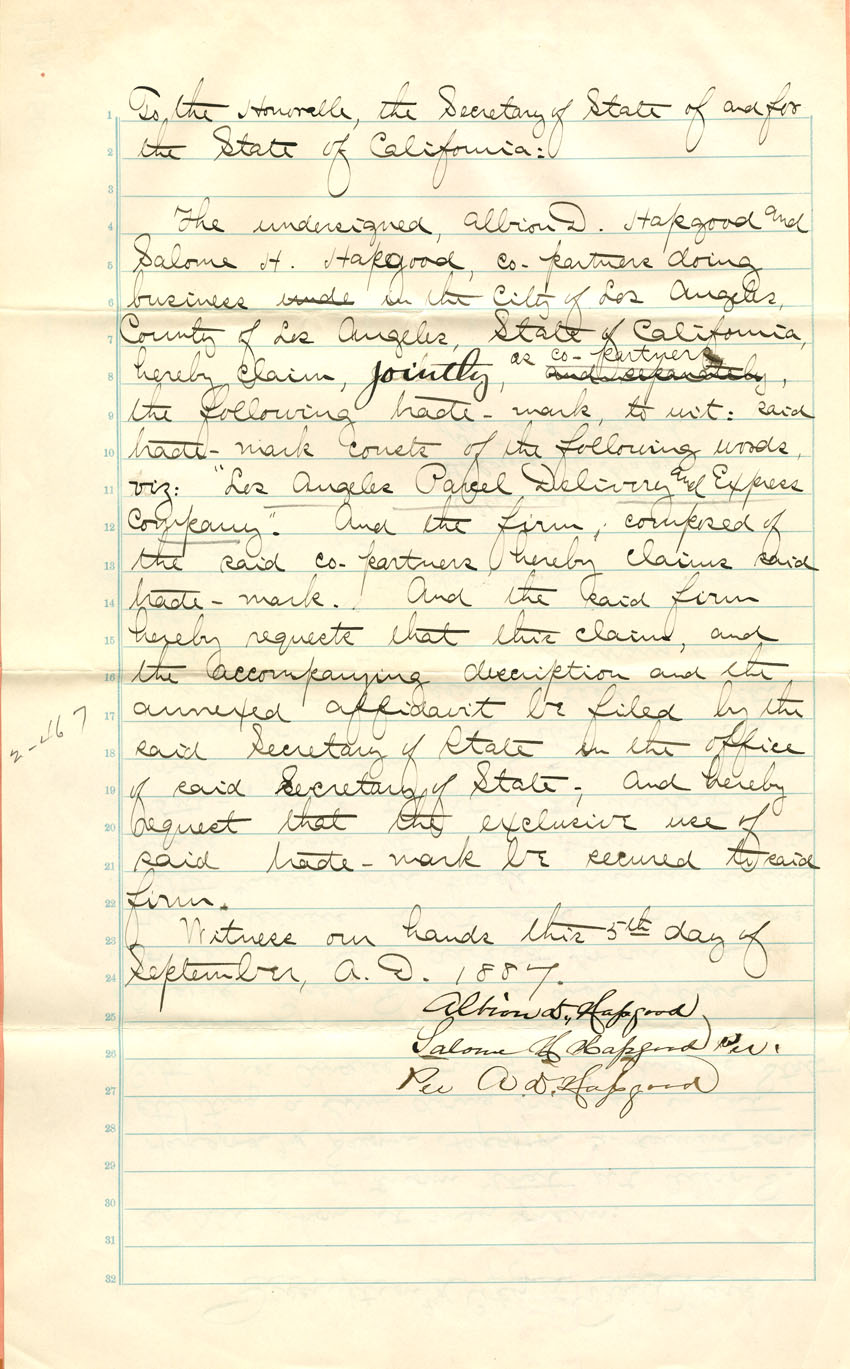 To, the Honoralle, the Secretary of State of and for
the State of California:
The undersigned, Albion D. Hapgood and
Salome H. Hapgood, co-partners doing
business unde in the City of Los Angeles,
County of Los Angeles, State of California,
hereby claim, jointly, as co-partners and separately,
the following trade-mark, to wit: said
trade-mark consts of the following words,
viz: "Los Angeles Parcel Delivery and Express
Company". And the firm, composed of
the said co-partners, hereby claims said
trade-mark. And the said firm
hereby requests that this claim, and
the accompanying description and the
annexed affidavit be filed by the
said Secretary of State in the office
of said Secretary of State; and hereby
request that the exclusive use of
said trade-mark be secured to said
firm.
Witness our hands this 5th day of
September, A. D. 1887.
Albion D. Hapgood
Salome H Hapgood Per.
Per A. D. Hapgood
2-467
1
2
3
4
5
6
7
8
9
10
11
12
13
14
15
16
17
18
19
20
21
22
23
24
25
26
27
28
29
30
31
32